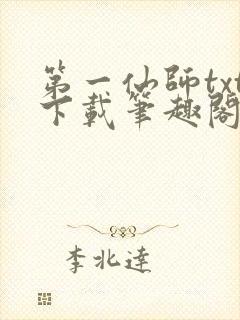 第一仙師txt
下載筆趣閣
李北達